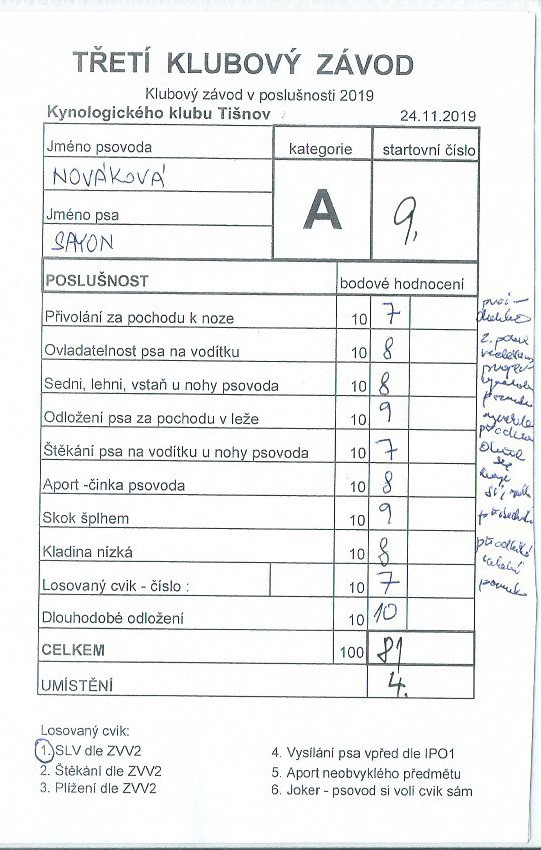 TŘETÍ KLUBOVÝ ZÁVOD
Klubový závod v poslušnosti 2019
Kynologického klubu Tišnov 24.11.2019
Jméno psovoda kategorie startovní číslo
NOVÁKOVÁ
Jméno psa A 9.
SAYON
POSLUŠNOST bodové hodnocení
Přivolání za pochodu k noze 10 7
Ovladatelnost psa na vodítku 10 8
Sedni, lehni, vstaň u nohy psovoda 10 8
Odložení psa za pochodu v leže 10 9
Štěkání psa na vodítku u nohy psovoda 10 7
Aport -činka psovoda 10 8
Skok šplhem 10 9
Kladina nízká 10 8
Losovaný cvik - číslo : 10 7
Dlouhodobé odložení 10 10
CELKEM 100 81
UMÍSTĚNÍ 4.
Losovaný cvik:
1. SLV dle ZVV2 4. Vysílání psa vpřed dle IPO1
2. Štěkání dle ZVV2 5. Aport neobvyklého předmětu
3. Plížení dle ZVV2 6. Joker - psovod si volí cvik sám